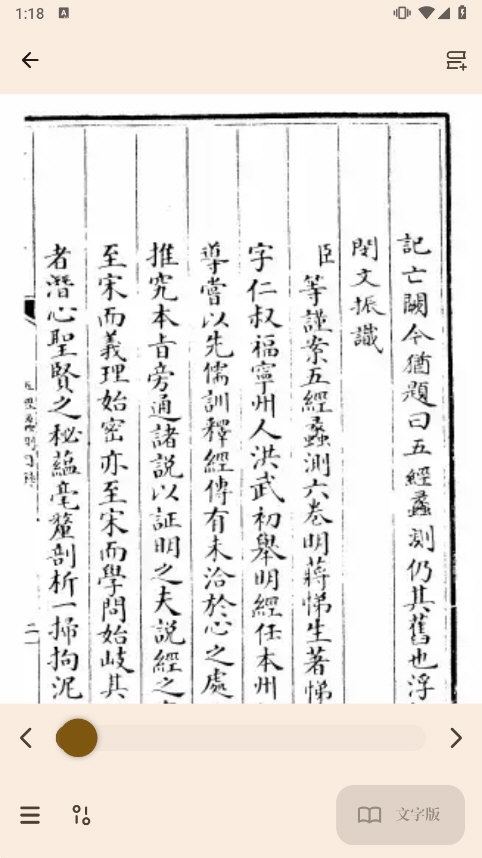 1:18
記亡闕今猶題曰五經蠡測仍其舊也浮
閔文振識
臣等謹案五經蠡測六卷明蔣悌生著悌
字仁叔福寧州人洪武初舉明經任本州
導嘗以先儒訓釋經傳有未洽於心之處
推究本旨旁通諸說以証明之夫說經之
至宋而義理始密亦至宋而學問始岐其
者潛心聖賢之秘蘊毫釐剖析一掃拘泥
二
文字版